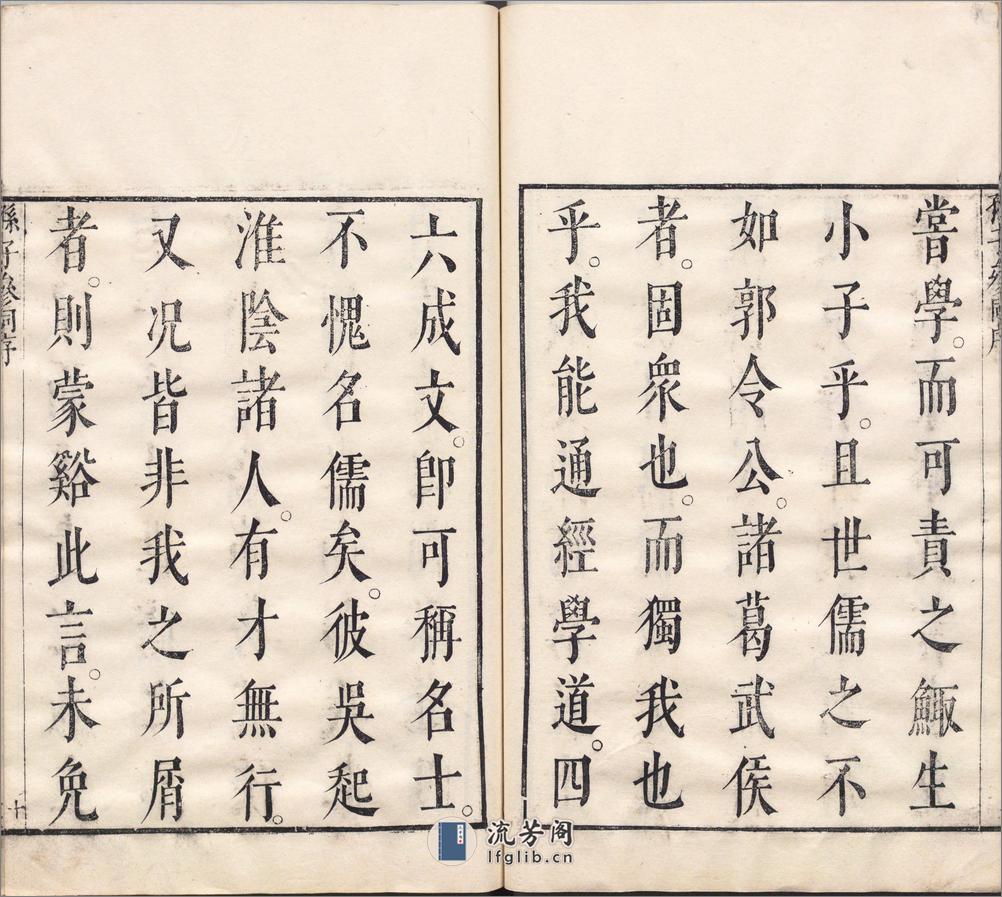 嘗學。而可責之鯫生
小子乎。且世儒之不
如郭令公。諸葛武侯
者。固衆也。而獨我也
乎。我能通經學道。四
六成文。卽可稱名士。
不愧名儒矣。彼吳起
淮陰諸人。有才無行。
又况皆非我之所屑
者。則蒙谿此言。未免
孫子參同序
十
流芳阁
lfglib.cn